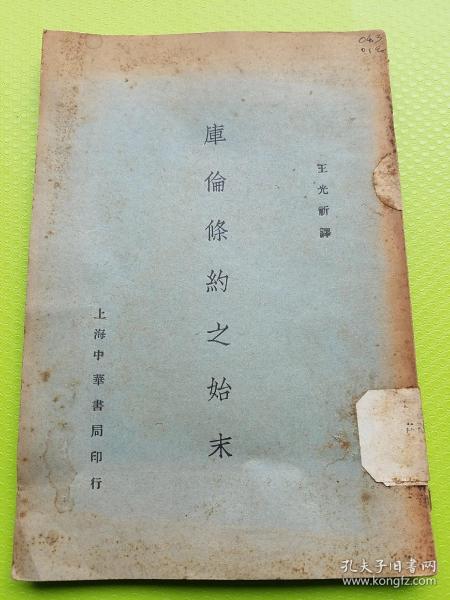 王光祈譯
庫倫條約之始末
上海中華書局印行
孔夫子旧书网
www.kongfz.com